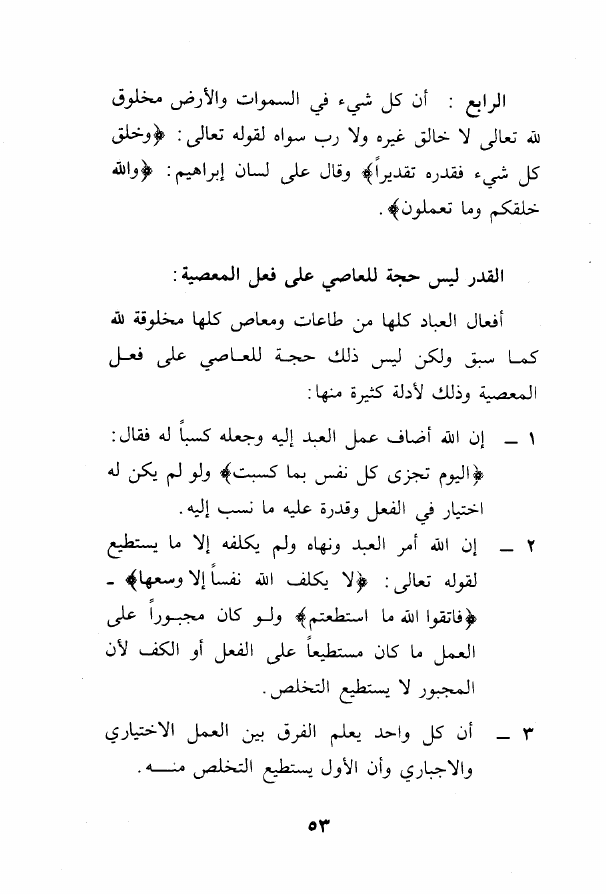 الرابع : أن كل شيء في السموات والأرض مخلوق
لله تعالى لا خالق غيره ولا رب سواه لقوله تعالى: ﴿وخلق
كل شيء فقدره تقديراً﴾ وقال على لسان إبراهيم: ﴿والله
خلقكم وما تعملون﴾.
القدر ليس حجة للعاصي على فعل المعصية:
أفعال العباد كلها من طاعات ومعاص كلها مخلوقة لله
كما سبق ولكن ليس ذلك حجة للعاصي على فعل
المعصية وذلك لأدلة كثيرة منها:
١ ـ إن الله أضاف عمل العبد إليه وجعله كسباً له فقال:
﴿اليوم تجزى كل نفس بما كسبت﴾ ولو لم يكن له
اختيار في الفعل وقدرة عليه ما نسب إليه.
٢ ـ إن الله أمر العبد ونهاه ولم يكلفه إلا ما يستطيع
لقوله تعالى: ﴿لا يكلف الله نفساً إلا وسعها﴾ ـ
﴿فاتقوا الله ما استطعتم﴾ ولو كان مجبوراً على
العمل ما كان مستطيعاً على الفعل أو الكف لأن
المجبور لا يستطيع التخلص.
٣ ـ أن كل واحد يعلم الفرق بين العمل الاختياري
والاجباري وأن الأول يستطيع التخلص منـــه.
٥٣